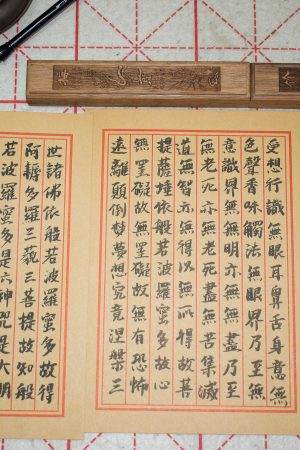 受想行識無眼耳鼻舌身意無
色聲香味觸法無眼界乃至無
意識界無無明亦無無盡乃至
無老死亦無老死盡無苦集滅
道無智亦無得以無所得故菩
提薩埵依般若波羅蜜多故心
無罣礙故無罣礙故無有恐怖
遠離顛倒夢想究竟涅槃三
世諸佛依般若波羅蜜多故得
阿耨多羅三藐三菩提故知般
若波羅蜜多是大神咒是大明